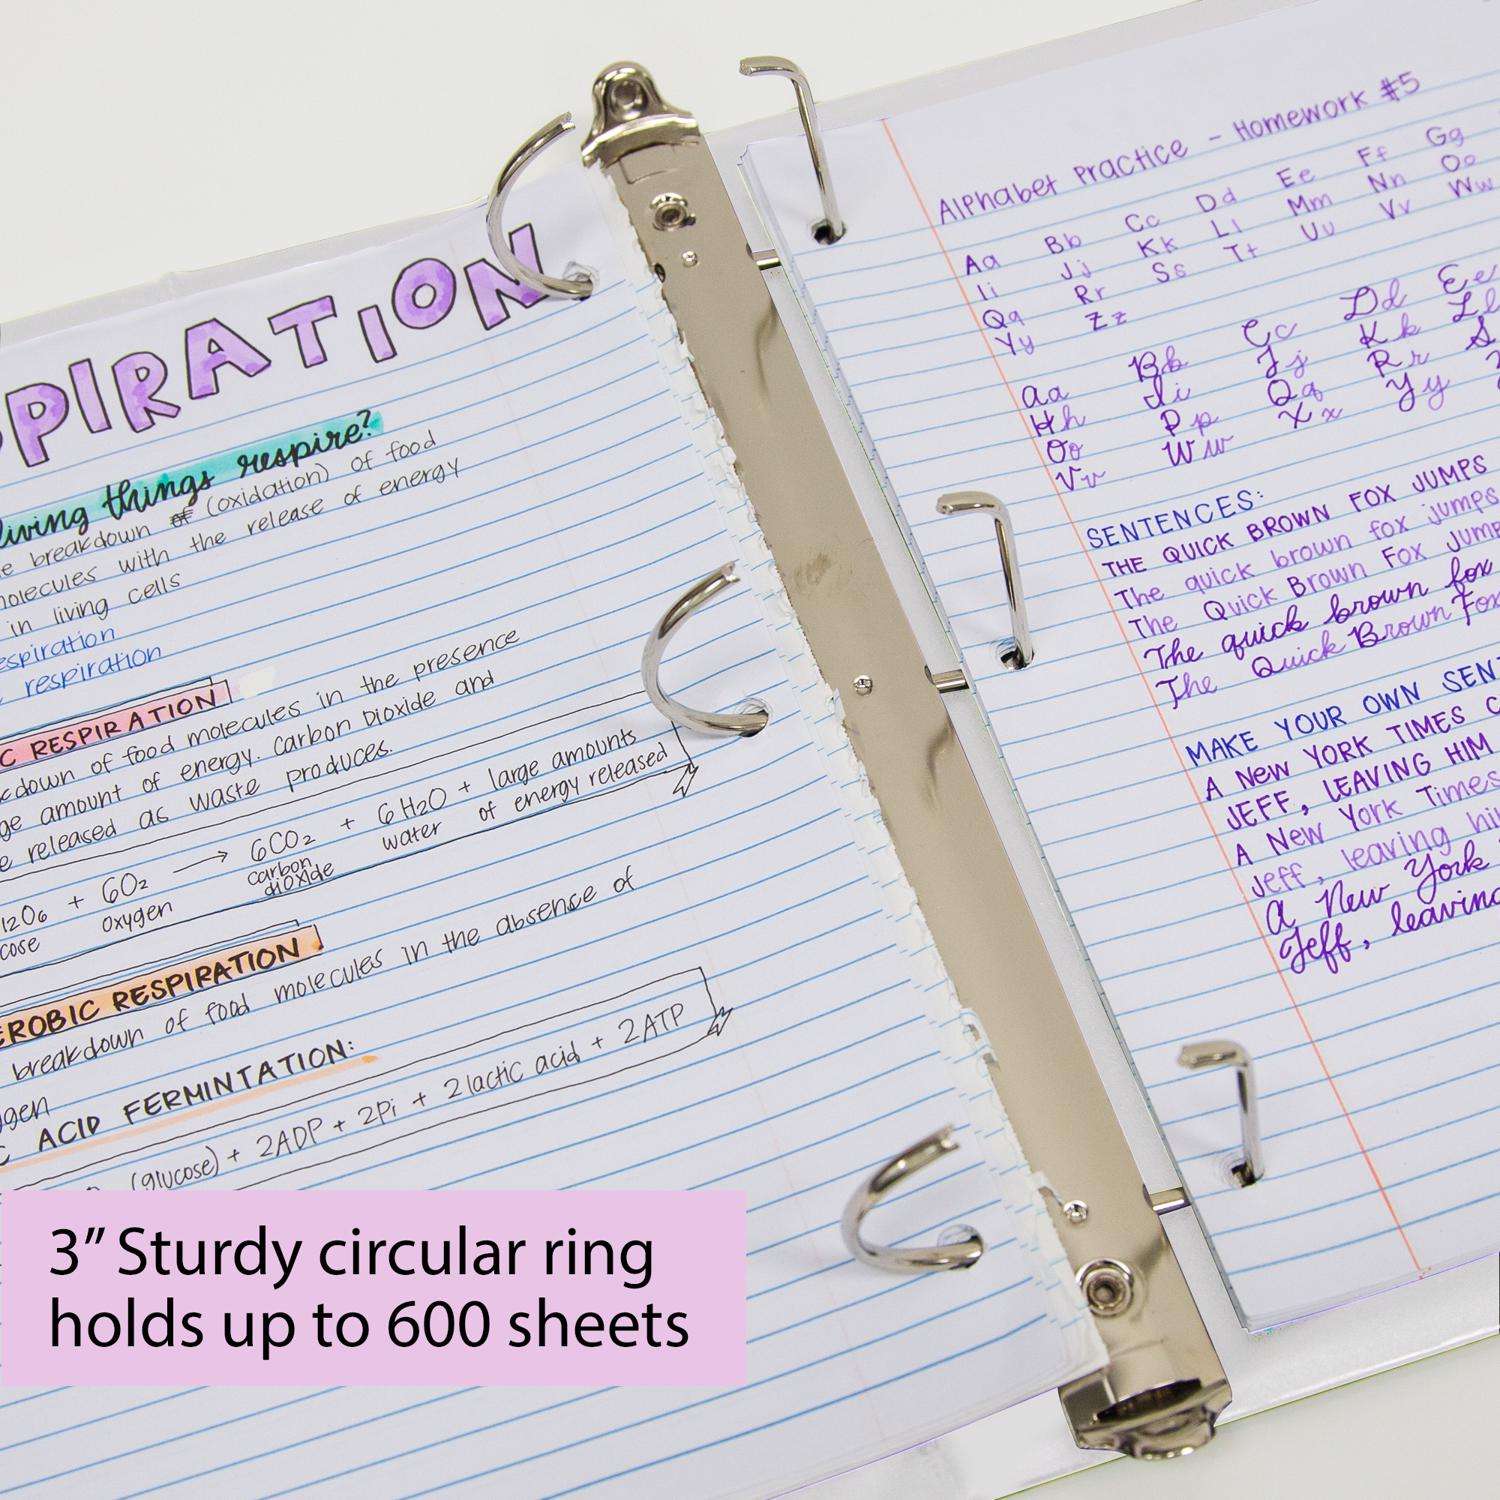 PIRATION
living things respire?
breakdown of (oxidation) of food
molecules with the release of energy
in living cells
respiration
respiration
C RESPIRATION
kdown of food molecules in the presence
ge amount of energy. Carbon Dioxide and
e released as waste produces.
12O6 + 6O2 → 6CO2 + 6H2O + large amounts
cose oxygen carbon dioxide water of energy released
EROBIC RESPIRATION
breakdown of food molecules in the absence of
gen
C ACID FERMINTATION:
(glucose) + 2ADP + 2Pi + 2 lactic acid + 2ATP
Alphabet Practice - Homework #5
Aa Bb Cc Dd Ee Ff Gg
Ii Jj Kk Ll Mm Nn Oo
Qq Rr Ss Tt Uu Vv Ww
Yy Zz
Aa Bb Cc Dd Ee
Hh Ii Jj Kk Ll
Oo Pp Qq Rr S
Vv Ww Xx Yy
SENTENCES:
THE QUICK BROWN FOX JUMPS
The quick brown fox jumps
The Quick Brown Fox Jump
The quick brown fox
The Quick Brown Fox
MAKE YOUR OWN SENT
A NEW YORK TIMES C
JEFF, LEAVING HIM
A New York Times
Jeff, leaving hi
A New York
Jeff, leaving
3” Sturdy circular ring
holds up to 600 sheets